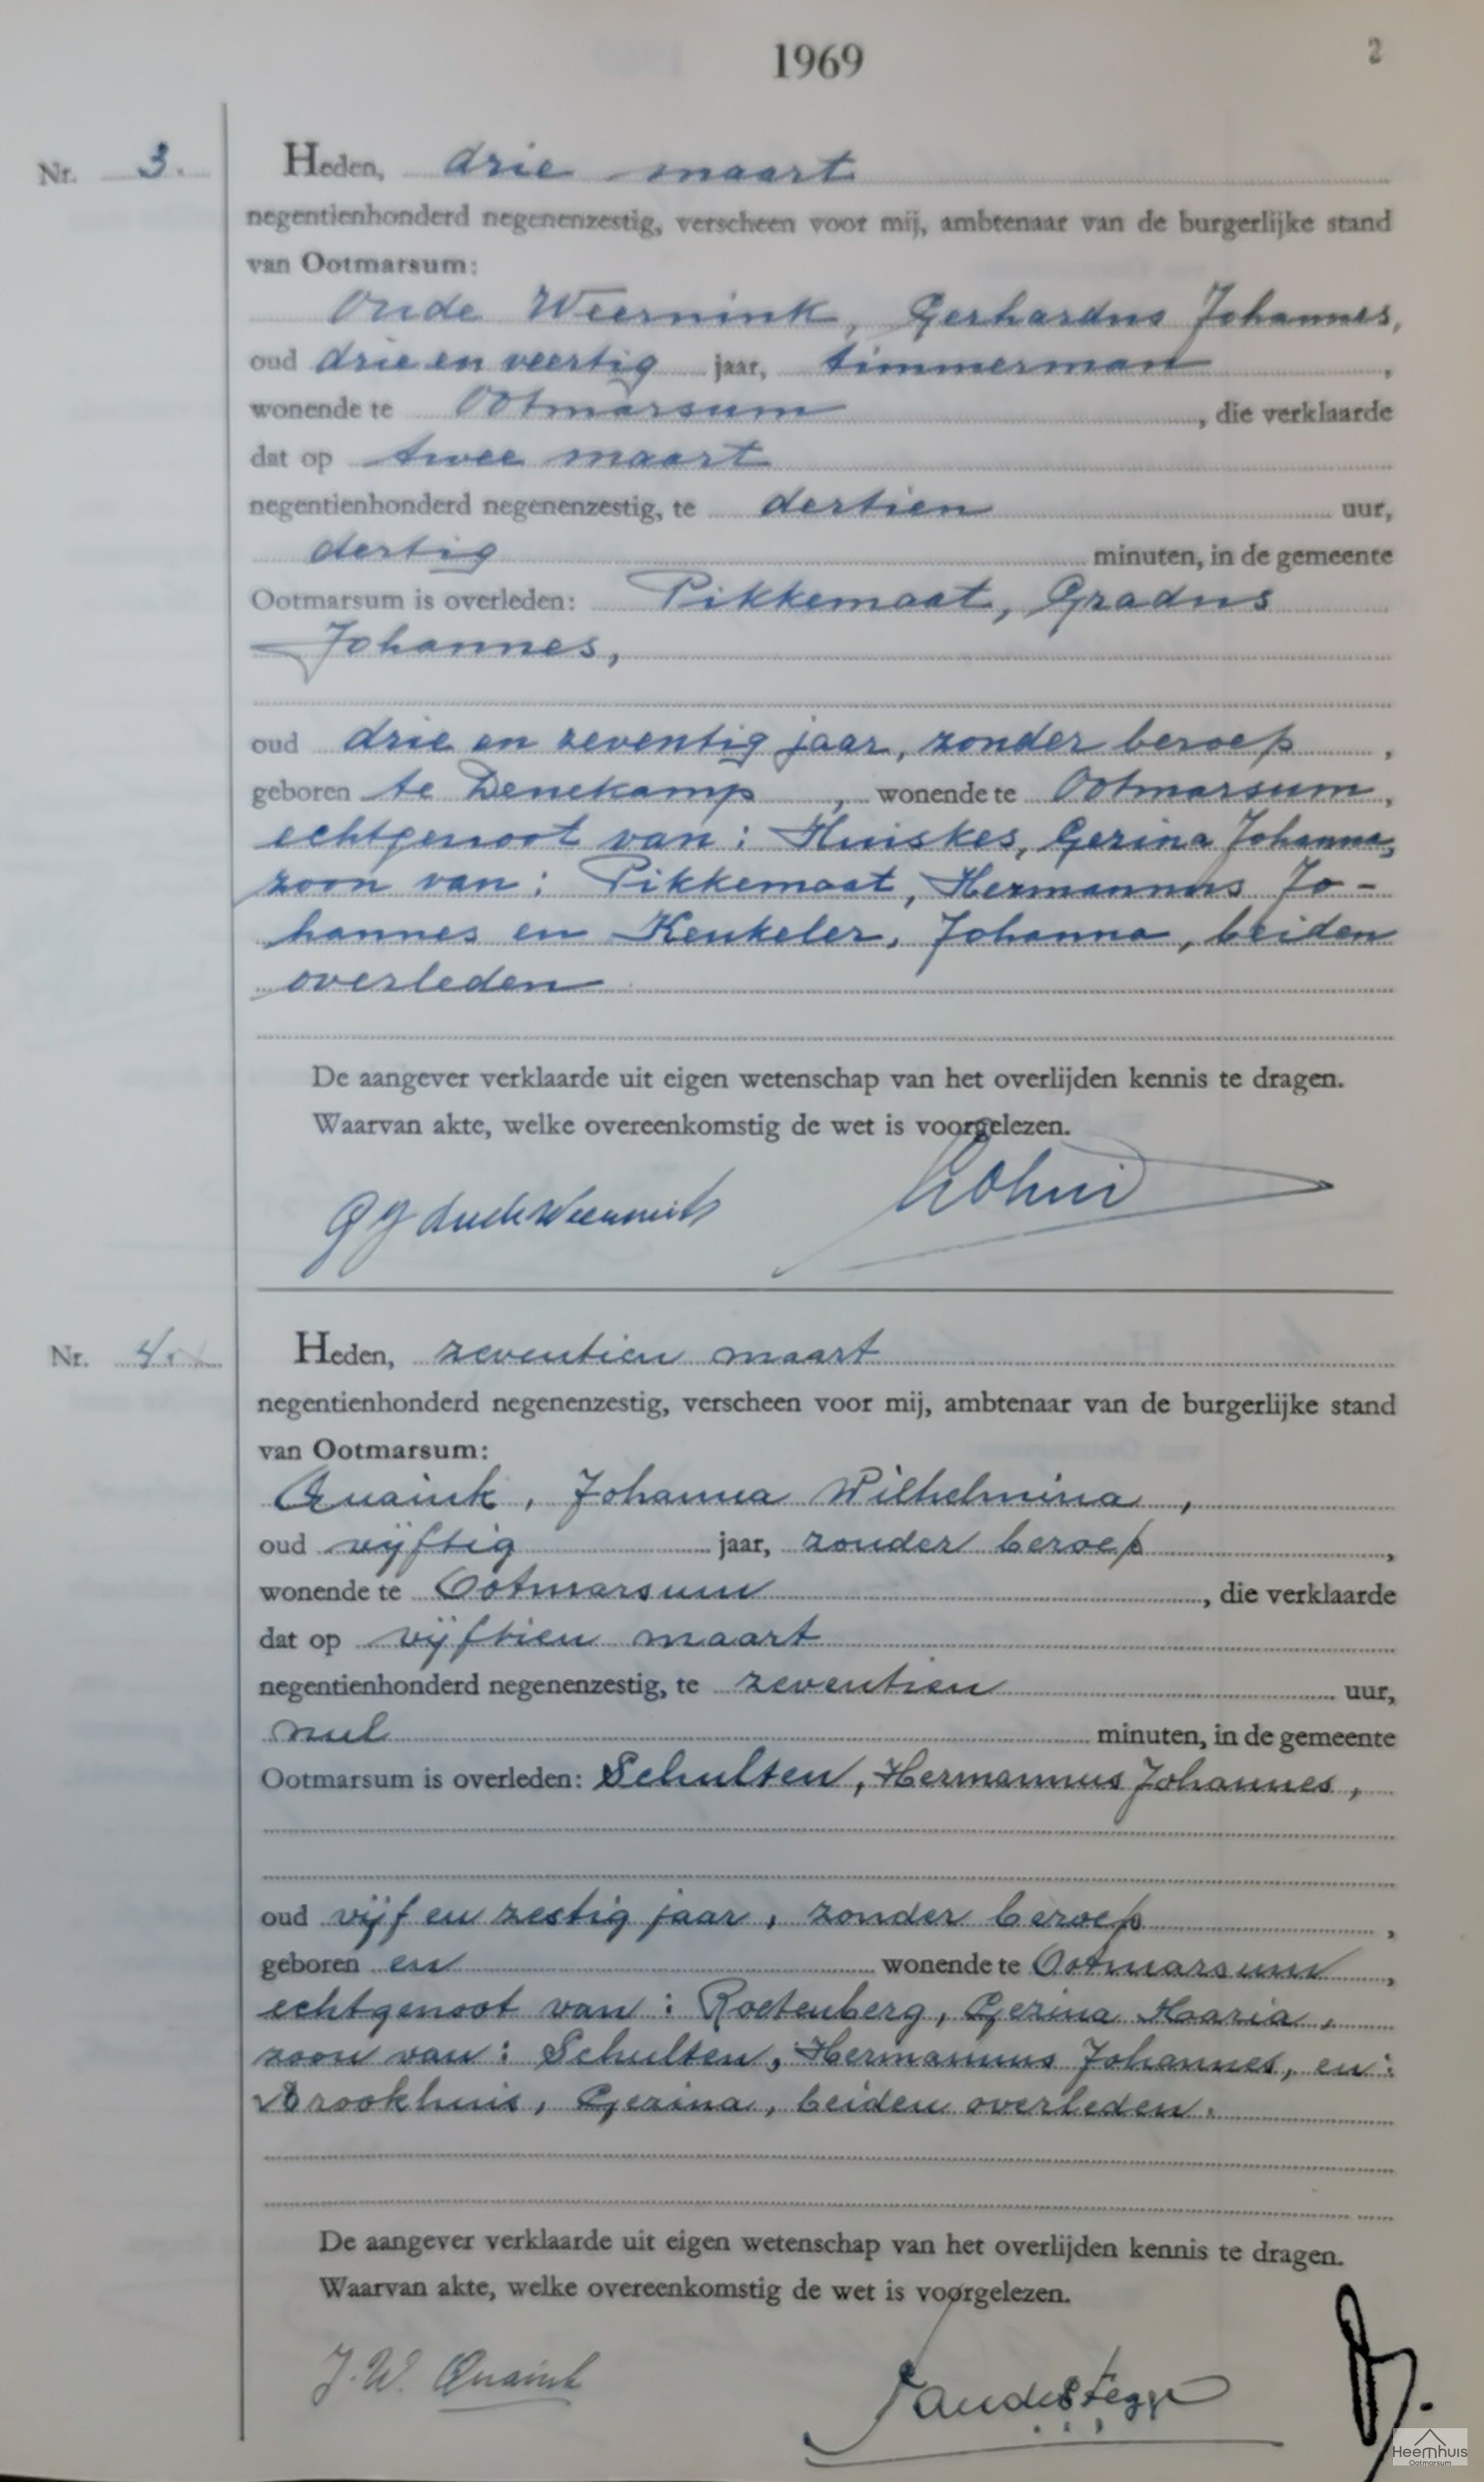 1969
2
Nr. 3.
Heden, drie maart
negentienhonderd negenenzestig, verscheen voor mij, ambtenaar van de burgerlijke stand
van Ootmarsum:
Oude Weernink, Gerhardus Johannes,
oud drie en veertig jaar, timmerman,
wonende te Ootmarsum, die verklaarde
dat op twee maart
negentienhonderd negenenzestig, te dertien uur,
dertig minuten, in de gemeente
Ootmarsum is overleden: Pikkemaat, Gradus
Johannes,
oud drie en zeventig jaar, zonder beroep,
geboren te Denekamp, wonende te Ootmarsum,
echtgenoot van: Huiskes, Gezina Johanna,
zoon van: Pikkemaat, Hermannus Jo-
hannes en Keukeler, Johanna, beiden
overleden
De aangever verklaarde uit eigen wetenschap van het overlijden kennis te dragen.
Waarvan akte, welke overeenkomstig de wet is voorgelezen.
G J oude Weernink
Nr. 4.
Heden, zeventien maart
negentienhonderd negenenzestig, verscheen voor mij, ambtenaar van de burgerlijke stand
van Ootmarsum:
Quaink, Johanna Wilhelmina,
oud vijftig jaar, zonder beroep,
wonende te Ootmarsum, die verklaarde
dat op vijftien maart
negentienhonderd negenenzestig, te zeventien uur,
nul minuten, in de gemeente
Ootmarsum is overleden: Schulten, Hermannus Johannes,
oud vijf en zestig jaar, zonder beroep,
geboren en wonende te Ootmarsum,
echtgenoot van: Roetenberg, Gezina Maria,
zoon van: Schulten, Hermannus Johannes, en:
Brookhuis, Gezina, beiden overleden.
De aangever verklaarde uit eigen wetenschap van het overlijden kennis te dragen.
Waarvan akte, welke overeenkomstig de wet is voorgelezen.
J. W. Quaink
Heemhuis
Ootmarsum